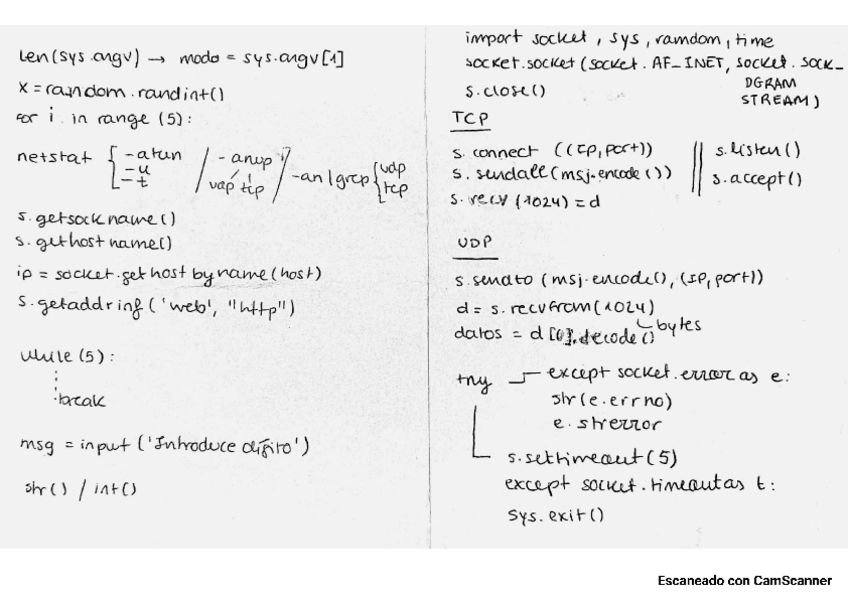 len(sys.argv) → modo = sys.argv[1]
x = random.randint()
for i in range (5):
netstat { -atun / -anup / -an | grep { udp
-u
-t
udp tcp
tcp
s.getsockname()
s.gethostname()
ip = socket.gethostbyname(host)
s.getaddrinf('web', "http")
while (5):
⋮
break
msg = input ('Introduce dígito')
str() / int()
import socket, sys, ramdom, time
socket.socket(socket.AF_INET, socket.SOCK_
DGRAM
STREAM)
s.close()
TCP
s.connect ((IP, port)) || s.listen()
s.sendall(msj.encode()) || s.accept()
s.recv (1024) = d
UDP
s.sendto (msj.encode(), (IP, port))
d = s.recvfrom(1024)
bytes
datos = d[0].decode()
try except socket.error as e:
str(e.errno)
e.strerror
s.settimeout(5)
except socket.timeout as t:
sys.exit()
Escaneado con CamScanner